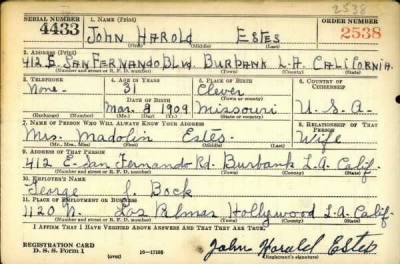 2538
SERIAL NUMBER 1. NAME (Print) ORDER NUMBER
4433 JOHN HAROLD ESTES 2538
(First) (Middle) (Last)
2. ADDRESS (Print)
412 E. SAN FERNANDO BLVD. BURBANK L.A. CALIFORNIA.
(Number and street or R. F. D. number) (Town) (County) (State)
3. TELEPHONE 4. AGE IN YEARS 5. PLACE OF BIRTH 6. COUNTRY OF CITIZENSHIP
None- 31 Clever
DATE OF BIRTH (Town or county)
Mar. 9 1909 Missouri U.S.A.
(Exchange) (Number) (Mo.) (Day) (Yr.) (State or country)
7. NAME OF PERSON WHO WILL ALWAYS KNOW YOUR ADDRESS 8. RELATIONSHIP OF THAT PERSON
Mrs. Madolin Estes. Wife
(Mr., Mrs., Miss) (First) (Middle) (Last)
9. ADDRESS OF THAT PERSON
412 E. San Fernando Rd. Burbank L.A. Calif.
(Number and street or R. F. D. number) (Town) (County) (State)
10. EMPLOYER'S NAME
George J. Bock
11. PLACE OF EMPLOYMENT OR BUSINESS
1120 N. Las Palmas Hollywood L.A. Calif.
(Number and street or R. F. D. number) (Town) (County) (State)
I AFFIRM THAT I HAVE VERIFIED ABOVE ANSWERS AND THAT THEY ARE TRUE.
REGISTRATION CARD
D. S. S. Form 1 (over) John Harold Estes
(Registrant's signature)